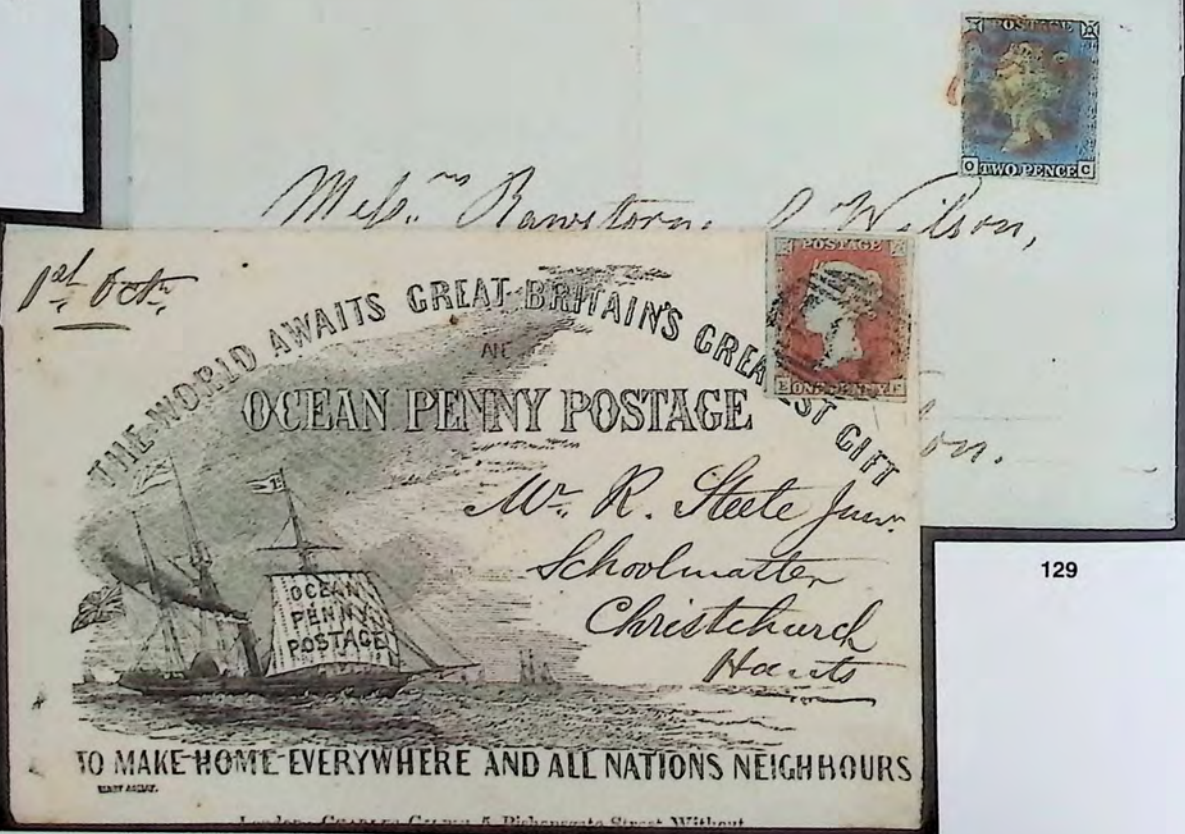 POSTAGE
O TWO PENCE C
Messrs Rawstorn, & Wilson,
on.
1st Octr
THE WORLD AWAITS GREAT BRITAIN'S GREATEST GIFT
AN
OCEAN PENNY POSTAGE
POSTAGE
E ONE PENNY F
Mr. R. Steele Junr.
Schoolmaster
Christchurch
Hants
1D
OCEAN
PENNY
POSTAGE
TO MAKE HOME EVERYWHERE AND ALL NATIONS NEIGHBOURS
London: CHARLES GILPIN 5 Bishopsgate Street Without
129